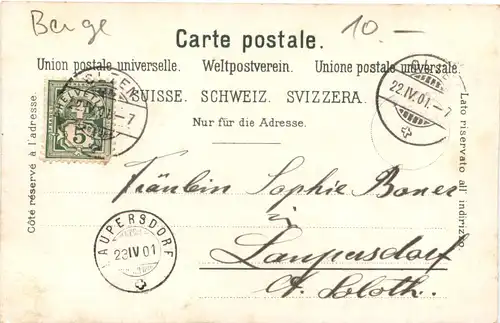 Berge
10.-
Carte postale.
Union postale universelle. Weltpostverein. Unione postale universale.
SUISSE. SCHWEIZ. SVIZZERA.
Nur für die Adresse.
Côté réservé à l'adresse.
Lato riservato all' indirizzo.
5
22.IV.01.-7
Fräulein Sophie
in
Laupersdorf
Kt. Soloth.
LAUPERSDORF
23 IV 01